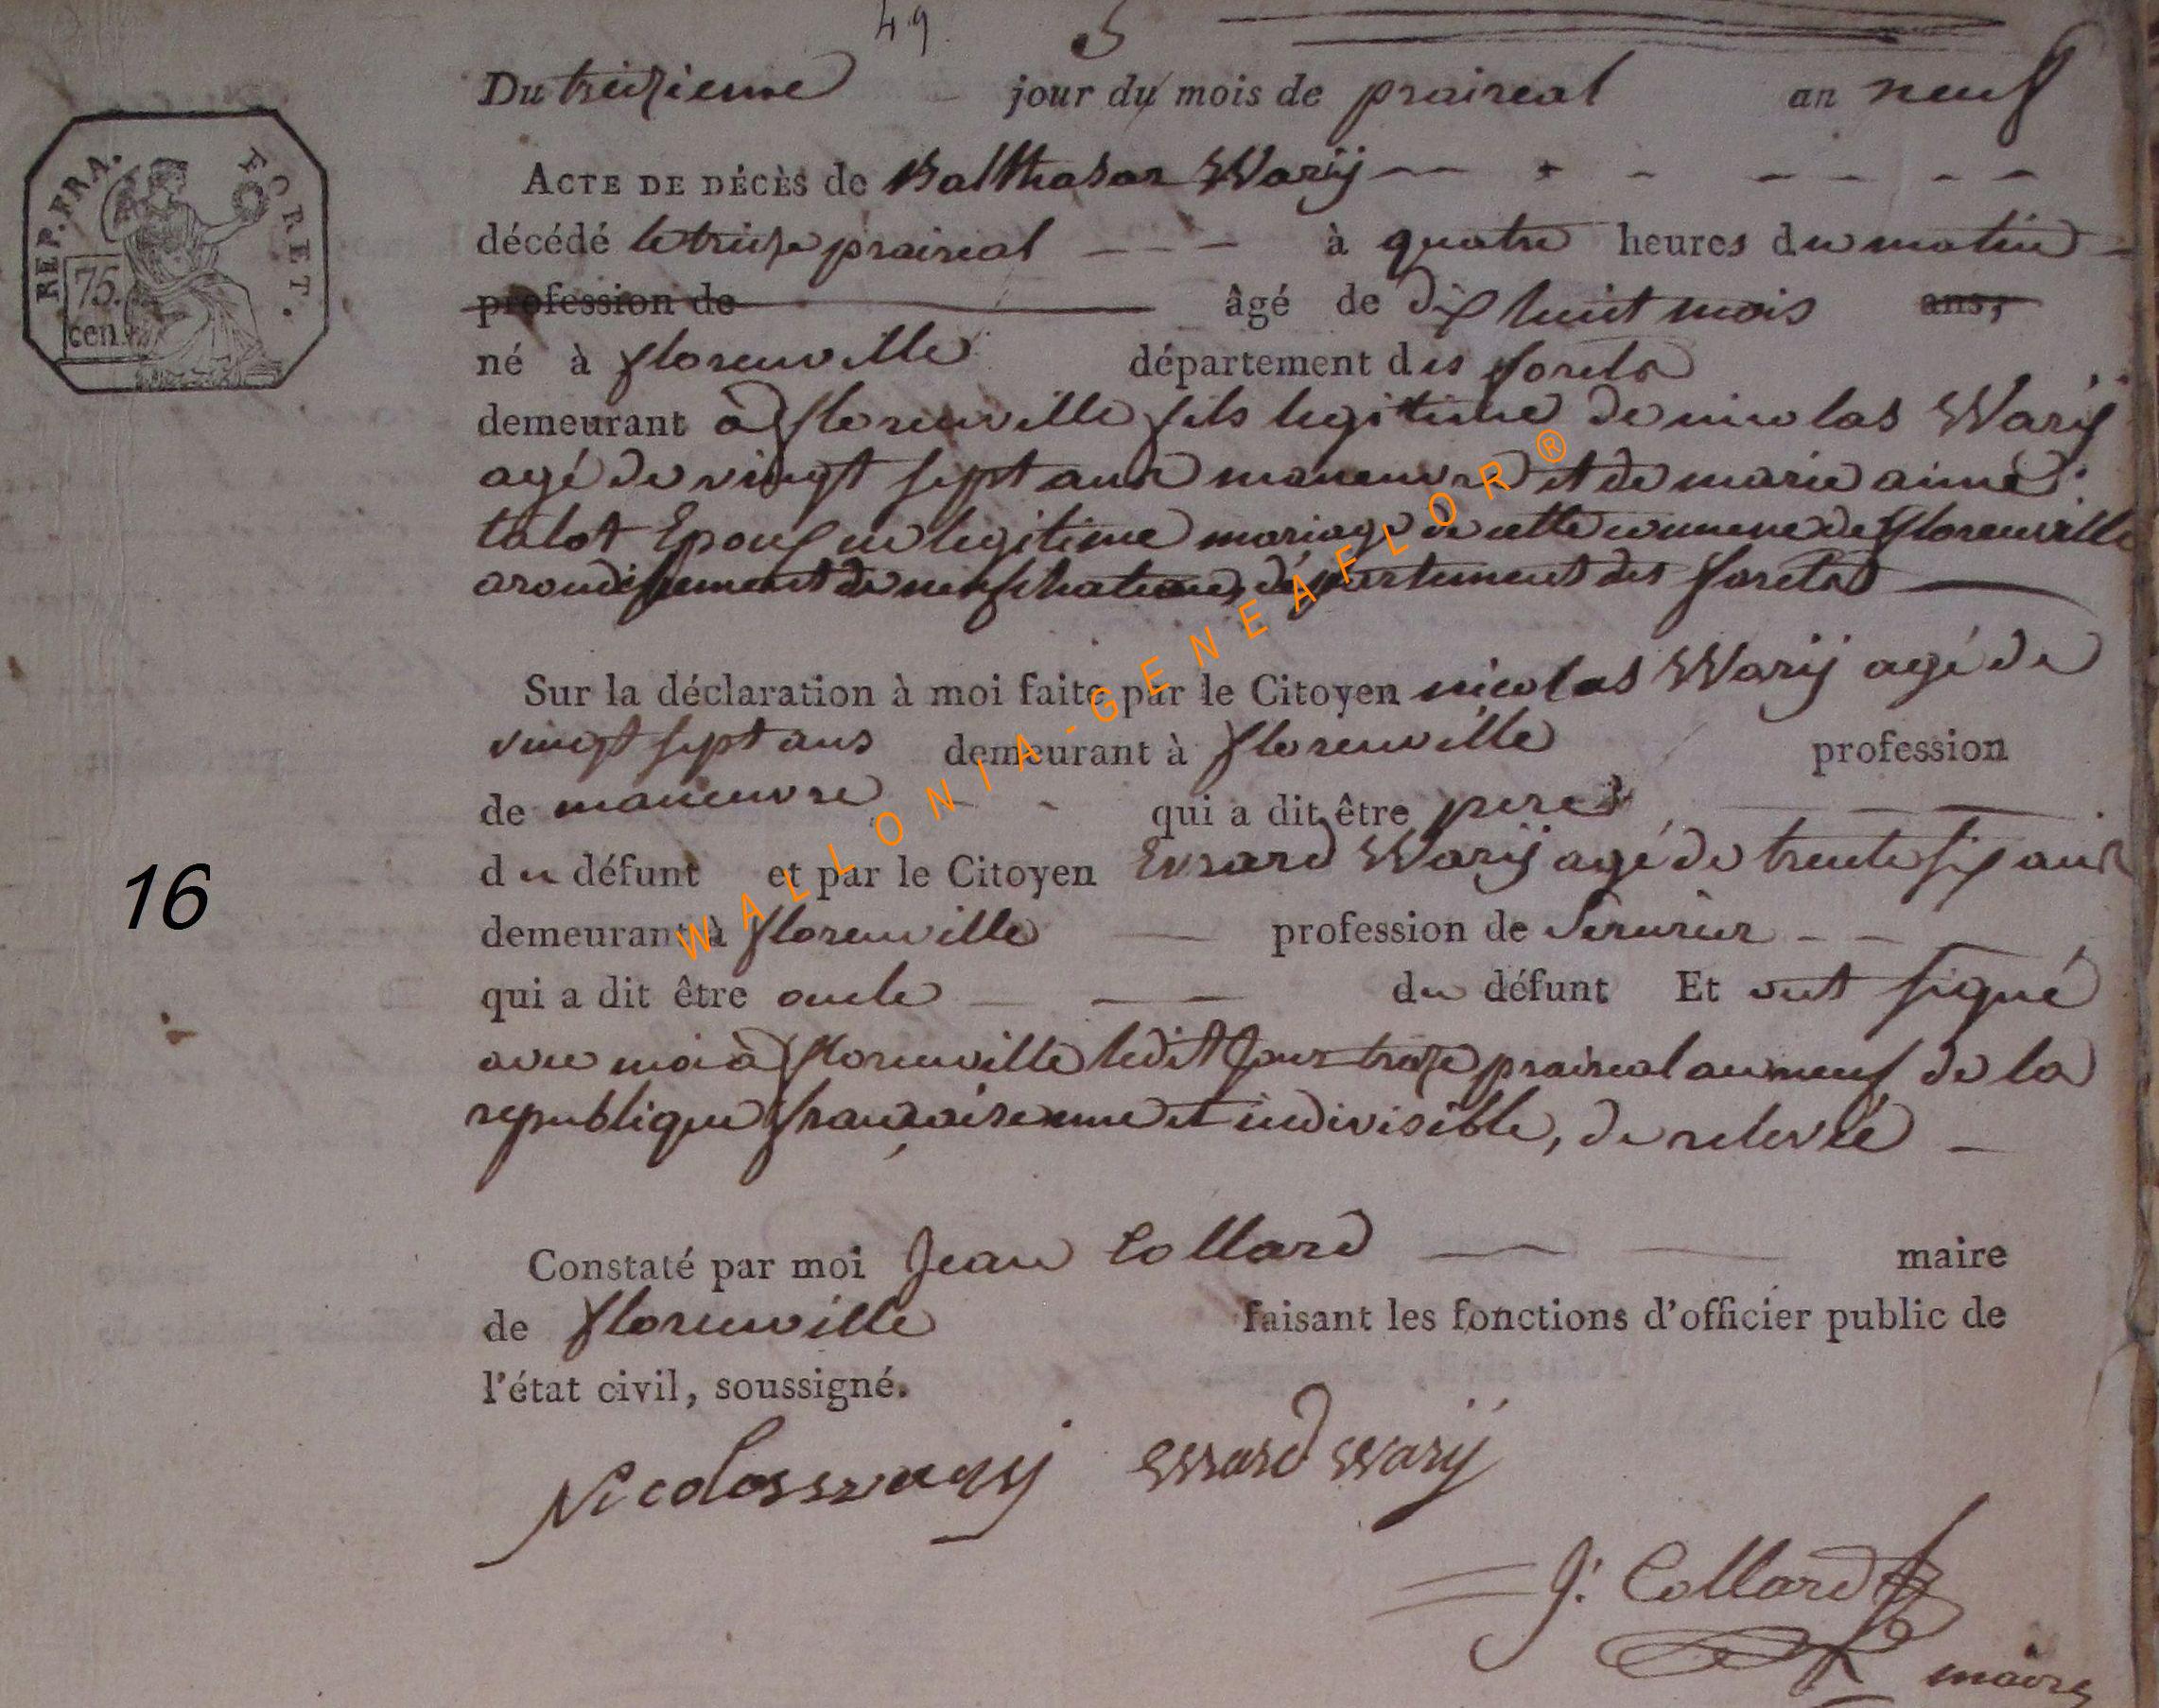 49. 5
Du treizieme jour du mois de praireal an neuf
REP. FRA. FORET.
75.
cen.
ACTE DE DÉCÈS de Balthasar Warij
décédé le treize praireal à quatre heures du matin
profession de âgé de dix huit mois ans,
né à florenville département des forets
demeurant à florenville fils legitime de nicolas Warij
agé de vingt sept ans maneuvre et de marie aimé
talot Epoux en legitime mariage de cette commune de florenville
arondissement de neufchateau, département des forets
Sur la déclaration à moi faite par le Citoyen nicolas Warij agé de
vingt sept ans demeurant à florenville profession
de maneuvre qui a dit être pere
du défunt et par le Citoyen Evrard Warij agé de trente six ans
16
demeurant à florenville profession de Serurier
qui a dit être oncle du défunt Et ont signé
avec moi à florenville ledit Jour treize praireal an neuf de la
republique française une et indivisible, de relevée
Constaté par moi Jean Collard maire
de florenville faisant les fonctions d'officier public de
l'état civil, soussigné.
Nicolas warij Evrard Warij
J: Collard
maire
WALLONIA-GENEAFLOR®